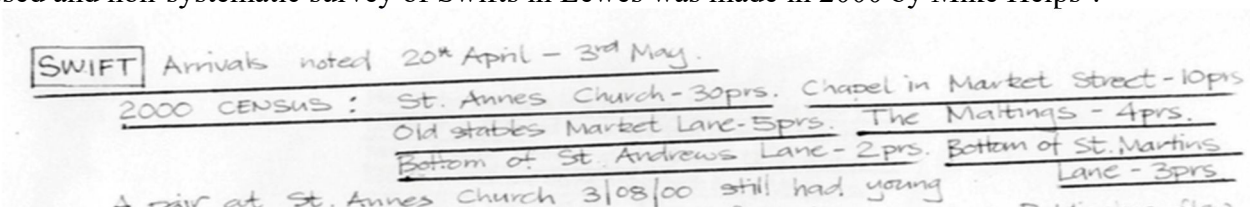 and non-systematic survey of Swifts in Lewes was made in 2000 by Mike Helps
SWIFT Arrivals noted 20th April - 3rd May.
2000 CENSUS : St. Annes Church - 30prs. Chapel in Market Street - 10prs
Old stables Market Lane - 5prs. The Maltings - 4prs.
Bottom of St. Andrews Lane - 2prs. Bottom of St. Martins
Lane - 3prs
A pair at St. Annes Church 3/08/00 still had young